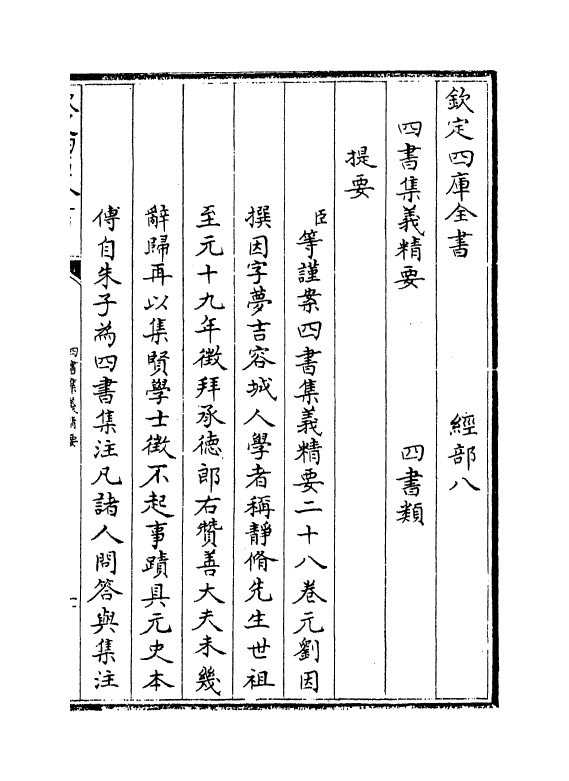 欽定四庫全書　經部八
四書集義精要　四書類
提要
臣等謹案四書集義精要二十八卷元劉因
撰因字夢吉容城人學者稱靜脩先生世祖
至元十九年徵拜承徳郎右贊善大夫未幾
辭歸再以集賢學士徵不起事蹟具元史本
傳自朱子為四書集注凡諸人問答與集注
四書集義精要